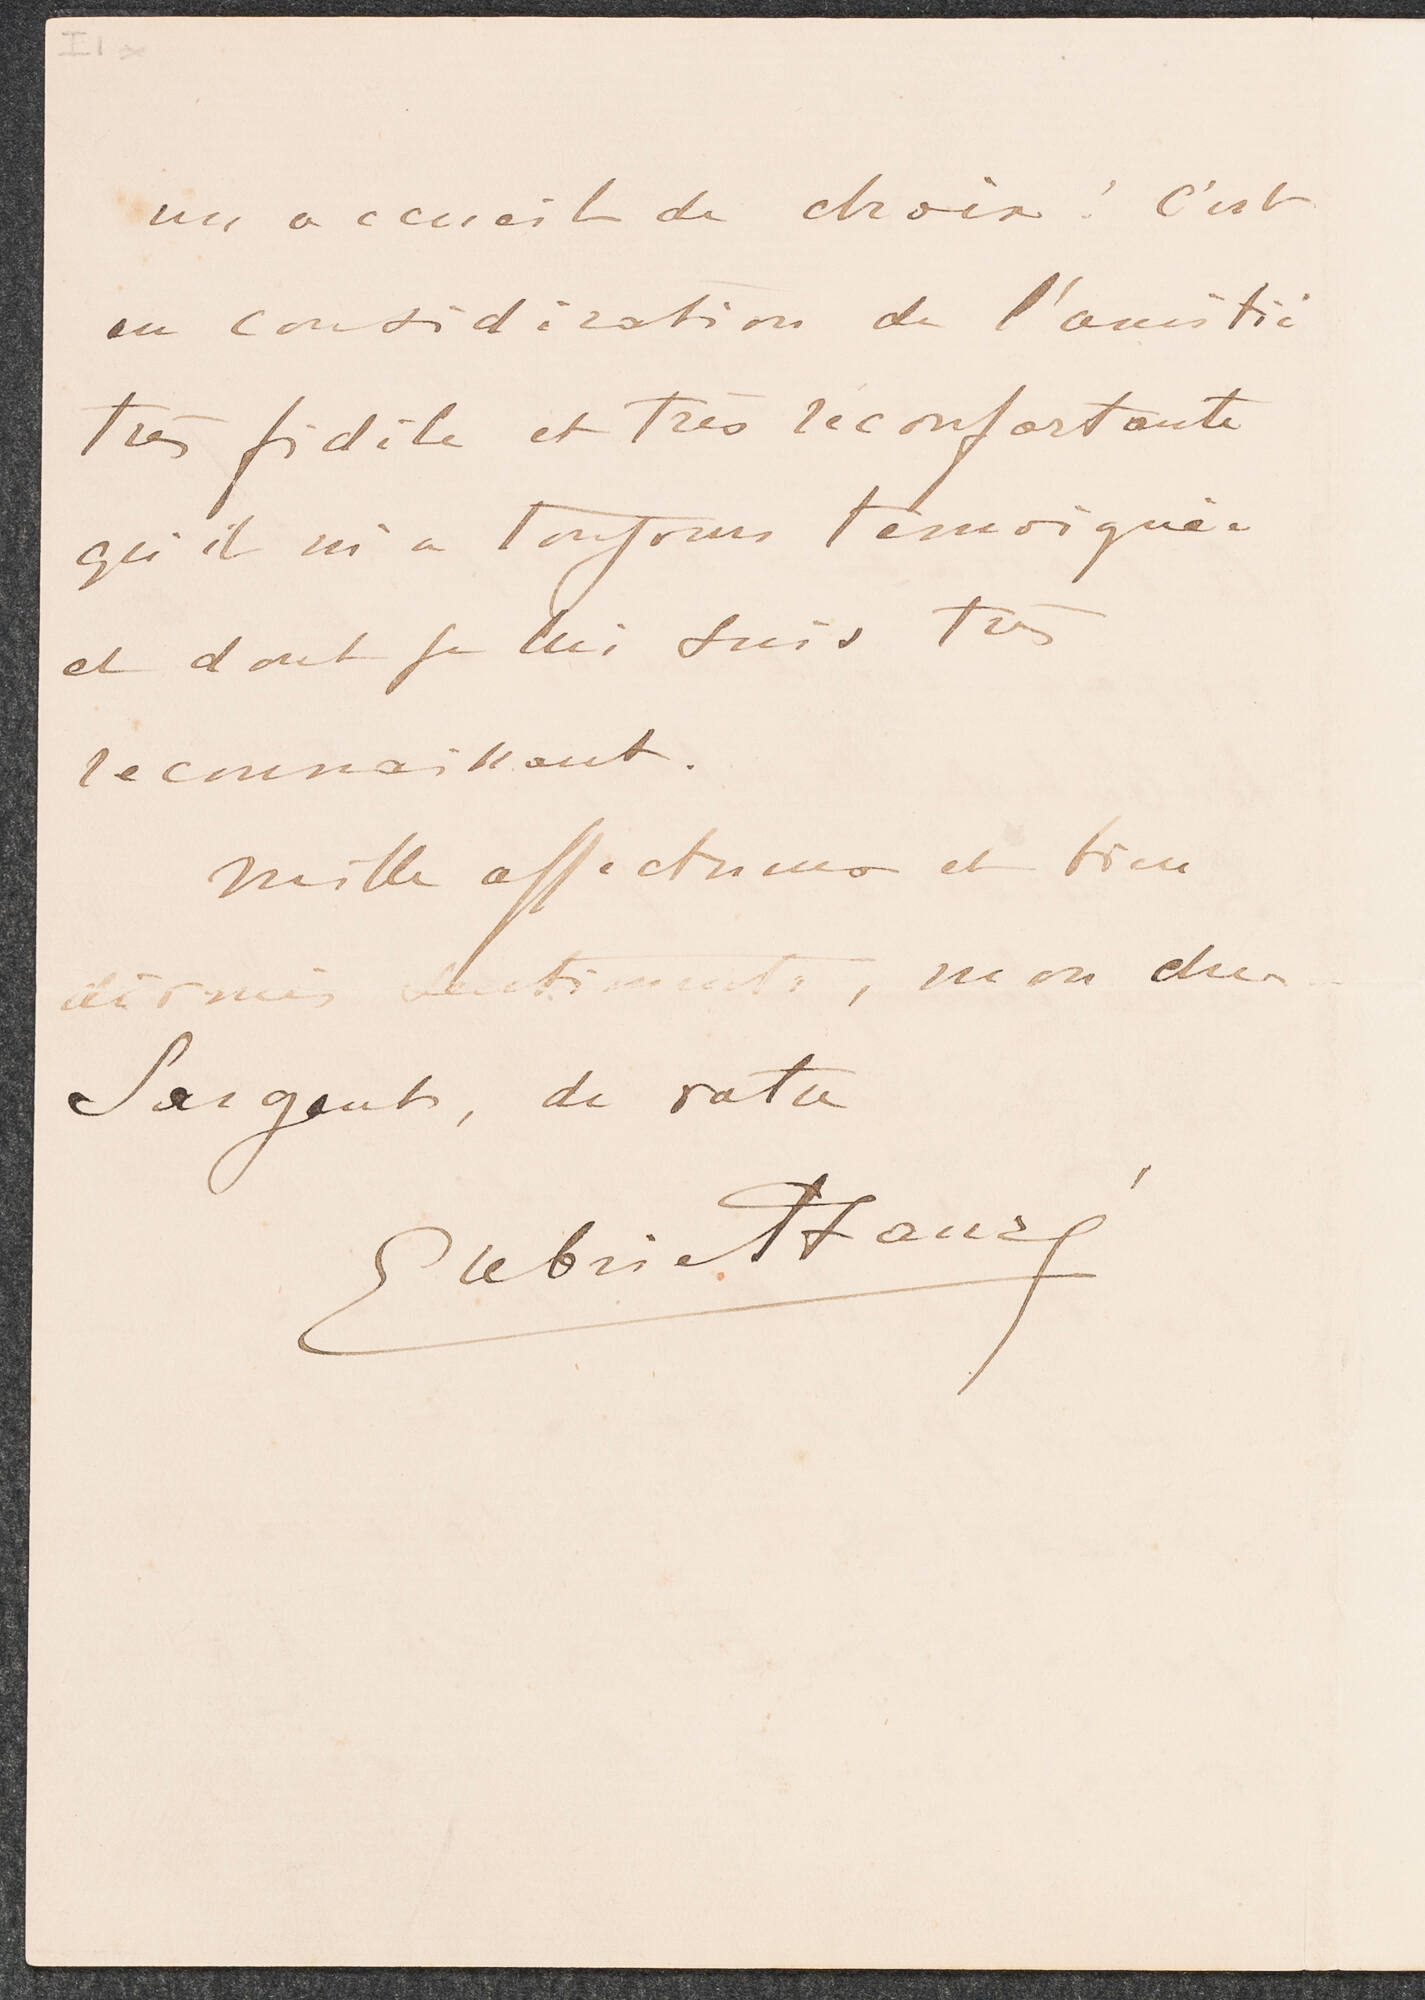 un accueil de choix ! C'est
en considération de l'amitié
très fidèle et très réconfortante
qu'il m'a toujours témoignée
et dont je lui suis très
reconnaissant.
Mille affectueux et bien
dévoués sentiments, mon cher
Sargent, de votre
Gabriel Fauré